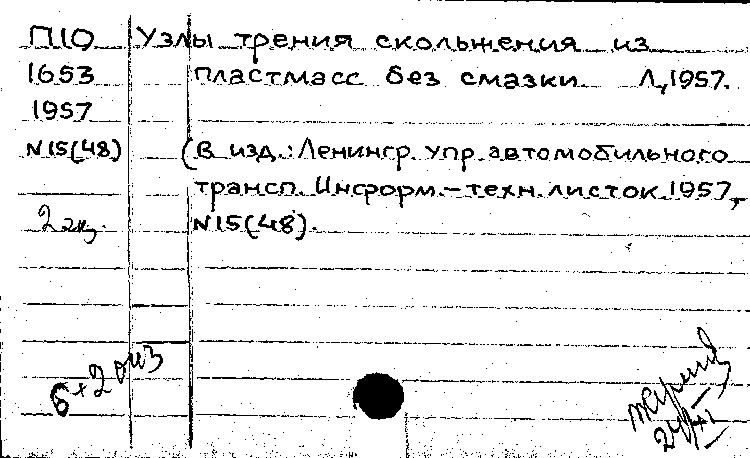 П10 Узлы трения скольжения из
1653 пластмасс без смазки. Л, 1957.
1957
N15(48) (В изд.: Ленингр. упр. автомобильного
трансп. Информ.-техн. листок. 1957,
2 экз. N15(48).
6+2